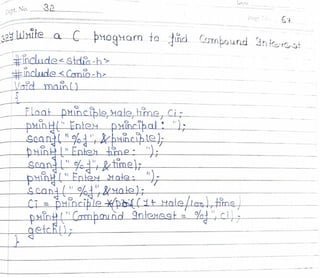 32
67
Write a C program to find Compound Interest
#include<stdio.h>
#include<Conio.h>
Void main()
{
Float principle,rate,time, Ci;
printf("Enter principal: ");
scanf("%f", &principle);
printf("Enter time: ");
scanf("%f", &time);
printf("Enter rate: ");
scanf("%f", &rate);
Ci = principle *(pow( (1+ rate/100), time)
printf("Compound Interest = %f", Ci);
getch();
}